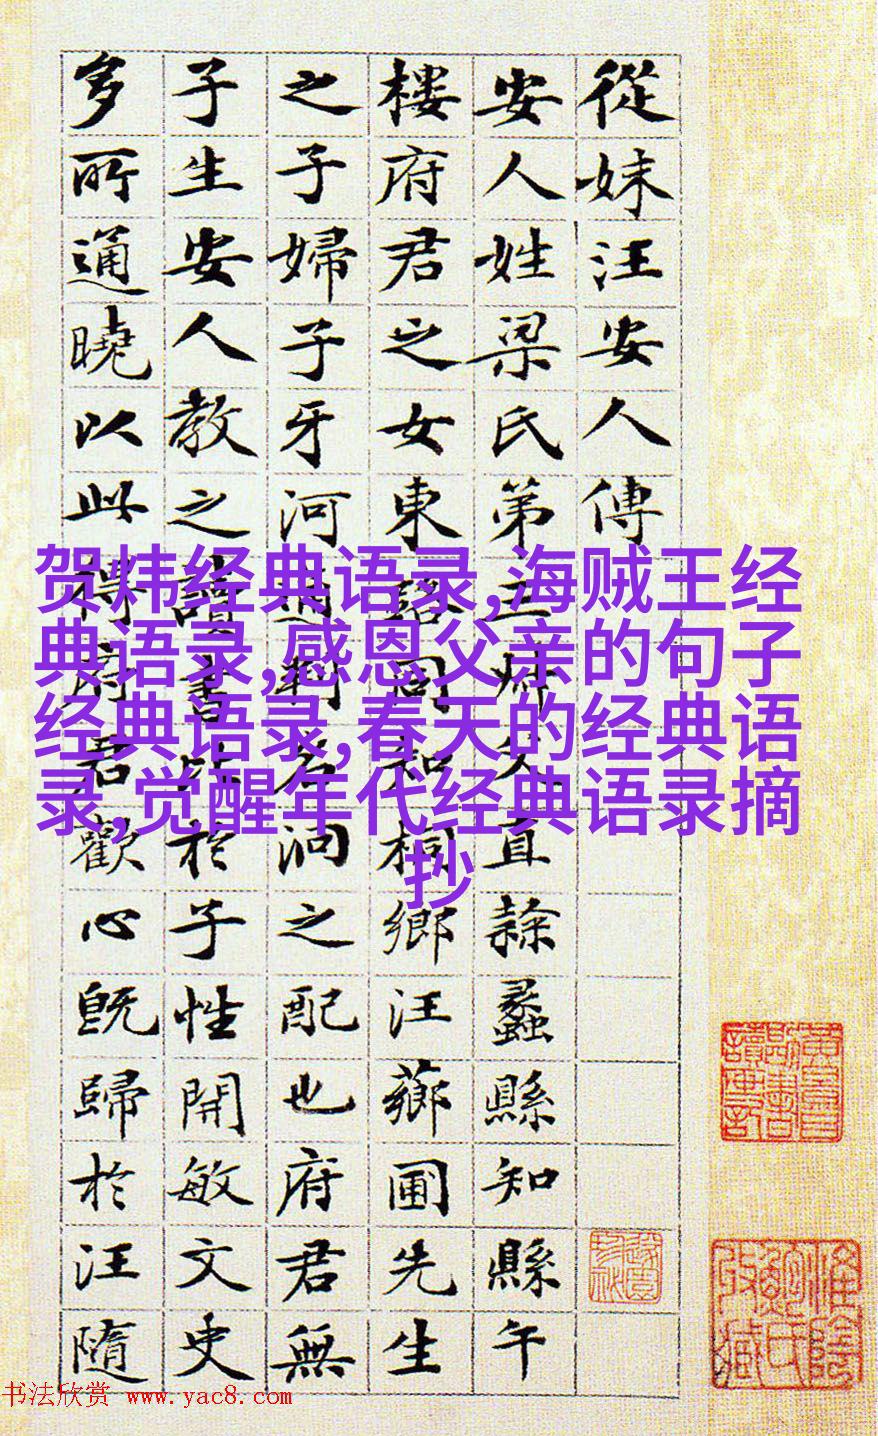 從妹汪安人傳
安人姓梁氏第五父直隸蠡縣知縣午
樓府君之女東路同知桐鄉汪薌圃先生
之子婦子牙河通判名泂之配也府君無
子生安人教之讀書比於子性開敏文史
多所通曉以此得府君歡心既歸於汪隨
贺炜经典语录,海贼王经
典语录,感恩父亲的句子
经典语录,春天的经典语
录,觉醒年代经典语录摘
抄
书法欣赏 www.yac8.com